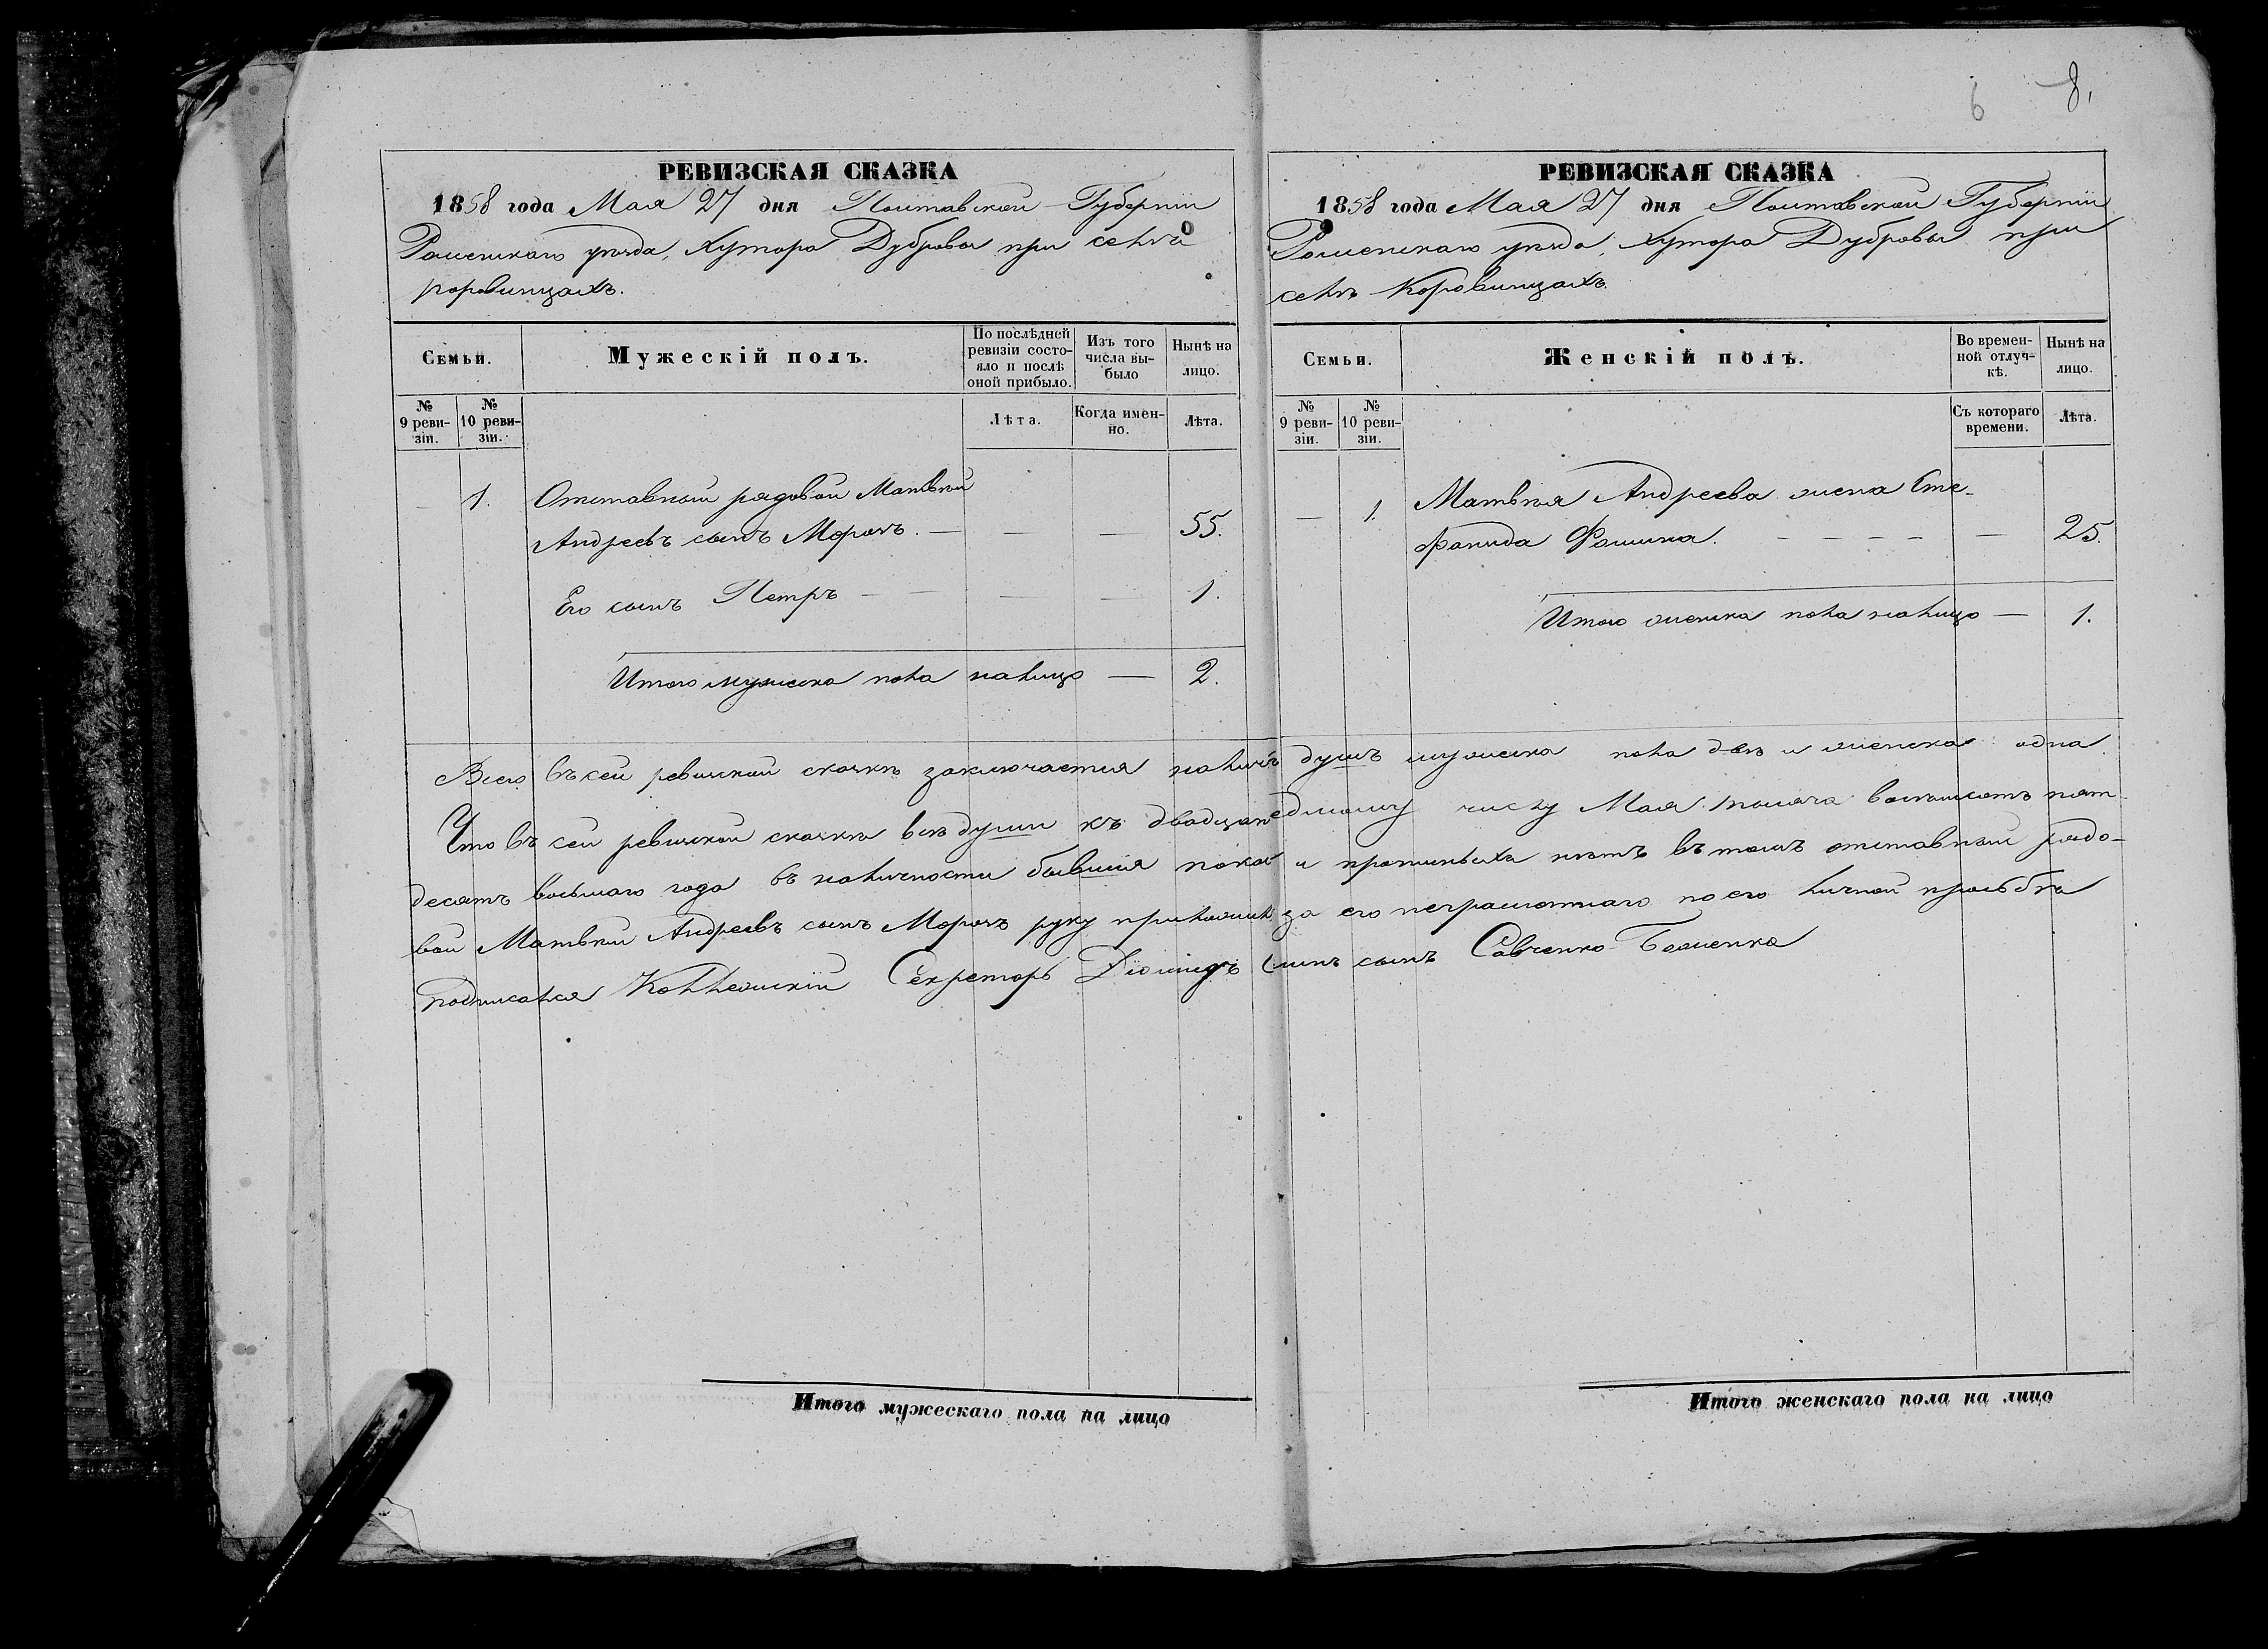 6 8.
РЕВИЗСКАЯ СКАЗКА
1858 года Мая 27 дня Полтавской Губерніи
Роменскаго уѣзда, Хутора Дубровы при селѣ
Коровинцахъ.
Семьи.
Мужескій полъ.
По послѣдней ревизіи состояло и послѣ оной прибыло.
Изъ того числа выбыло
Нынѣ на лицо.
№ 9 ревизіи.
№ 10 ревизіи.
Лѣта.
Когда именно.
Лѣта.
— 1. Отставный рядовой Матвѣй
Андреевъ сынъ Морозъ. — — — 55.
Его сынъ Петръ — — — — 1.
Итого мужеска пола налицо — 2.
РЕВИЗСКАЯ СКАЗКА
1858 года Мая 27 дня Полтавской Губерніи
Роменскаго уѣзда, Хутора Дубровы при
селѣ Коровинцахъ.
Семьи.
Женскій полъ.
Во временной отлучкѣ.
Нынѣ на лицо.
№ 9 ревизіи.
№ 10 ревизіи.
Съ котораго времени.
Лѣта.
— 1. Матвѣя Андреева жена Сте-
фанида Фомина. — — — — — 25.
Итого женска пола налицо — 1.
Всего въ сей ревизской сказкѣ заключается налицо душъ мужеска пола двѣ и женска одна.
Что въ сей ревизской сказкѣ всѣ души къ двадцать седьмому числу Мая тысяча восемьсотъ пять-
десятъ восьмаго года въ наличности бывшія показаны и прописныхъ нѣтъ въ томъ отставный рядо-
вой Матвѣй Андреевъ сынъ Морозъ руку приложилъ за его неграмотнаго по его личной просьбѣ
подписался Коллежскій Секретарь сынъ Савченко
Итого мужескаго пола на лицо
Итого женскаго пола на лицо